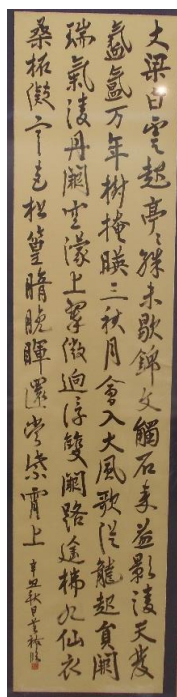 大梁白雲起亭〻殊未歇錦文觸石来蓋影凌天發
万年樹掩暎三秋月會入大風歌從龍起員闕
瑞氣凌丹闕空濛上翠微迥浮雙闕路遙拂九仙衣
桑柘凝寒色松篁暗晚暉還當紫霄上
辛丑秋日